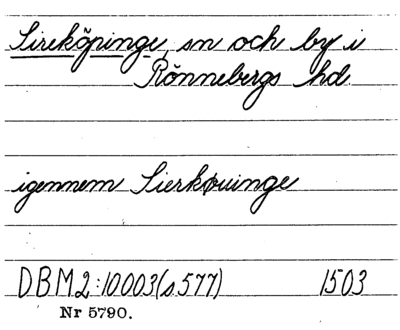 Sireköpinge, sn och by i
Rönnebergs hd.
igennem Sierkøuinge
DBM2:10003(s.577) 1503
Nr 5790.